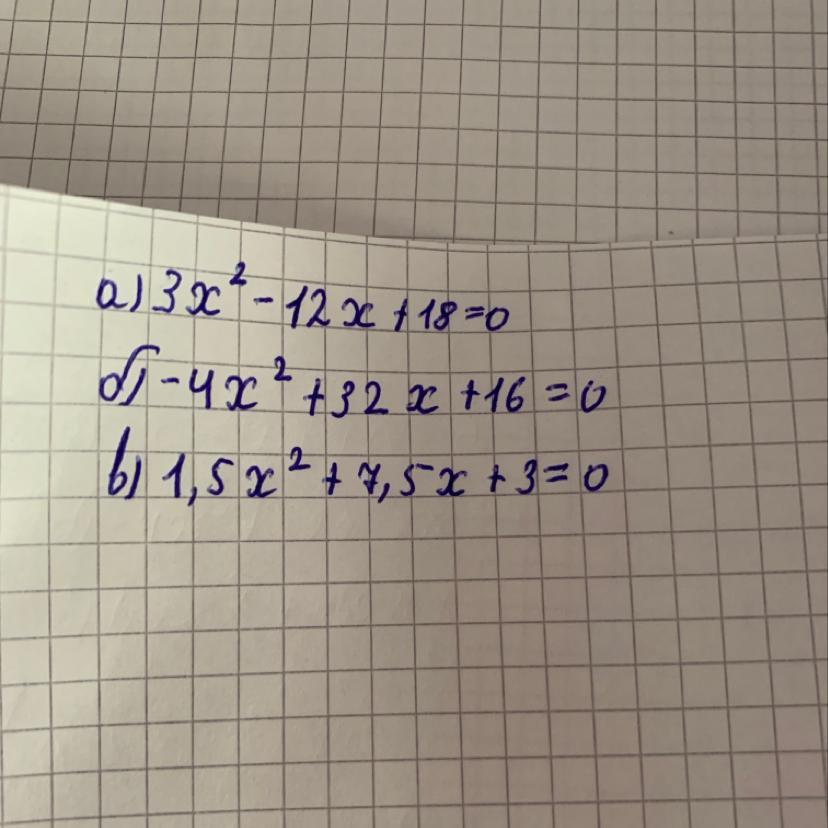 а) 3x² - 12x + 18 = 0
б) -4x² + 32x + 16 = 0
в) 1,5x² + 7,5x + 3 = 0